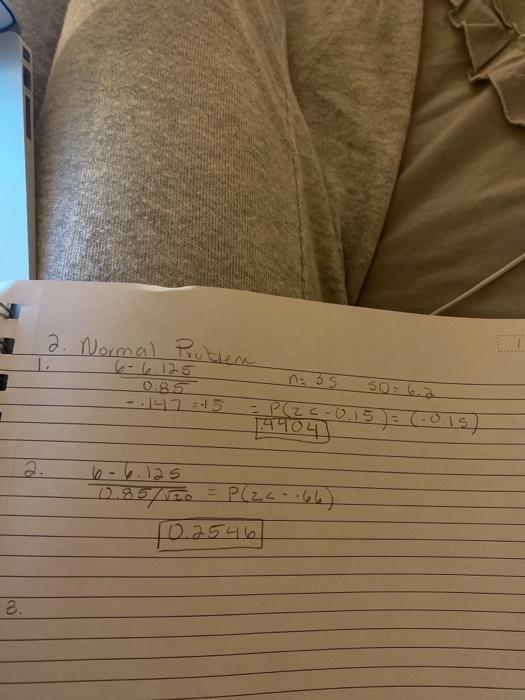 2. Normal Problem
1. 6-6.125
0.85
n= 35 SD= 6.2
-.147 = .15 = P(z < -0.15) = (-0.15)
.4404
2. 6-6.125
0.85/√20 = P(z < -.66)
0.2546
3.